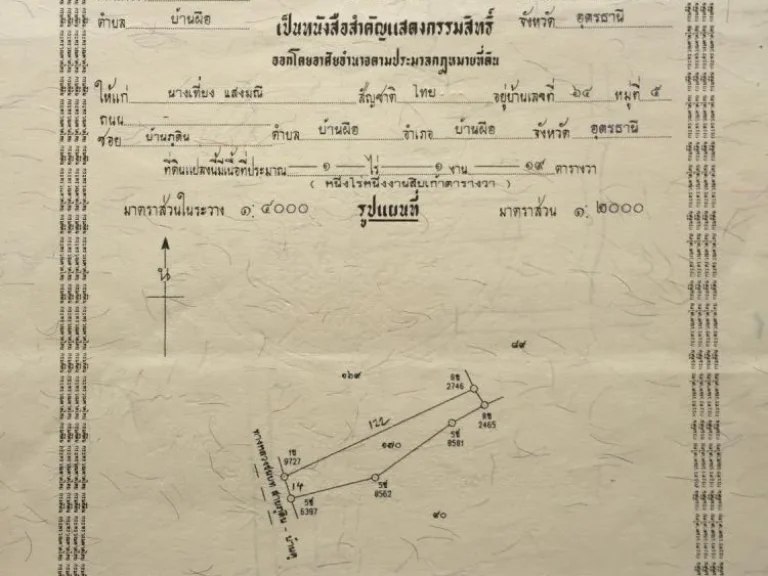 ตำบล บ้านผือ เป็นหนังสือสำคัญแสดงกรรมสิทธิ์ จังหวัด อุดรธานี
ออกโดยอาศัยอำนาจตามประมวลกฎหมายที่ดิน
ให้แก่ นางเที่ยง แสงมณี สัญชาติ ไทย อยู่บ้านเลขที่ ๖๔ หมู่ที่ ๕
ถนน
ซอย บ้านภูดิน ตำบล บ้านผือ อำเภอ บ้านผือ จังหวัด อุดรธานี
ที่ดินแปลงนี้มีเนื้อที่ประมาณ ๑ ไร่ ๑ งาน ๑๙ ตารางวา
( หนึ่งไร่หนึ่งงานสิบเก้าตารางวา )
มาตราส่วนในระวาง ๑: ๔๐๐๐ รูปแผนที่ มาตราส่วน ๑: ๒๐๐๐
น
๘๙
๑๖๙
2746
2465
122
5ช
8581
๑๗๐
9727
14
5ช
8562
5ช
6397
๙๐